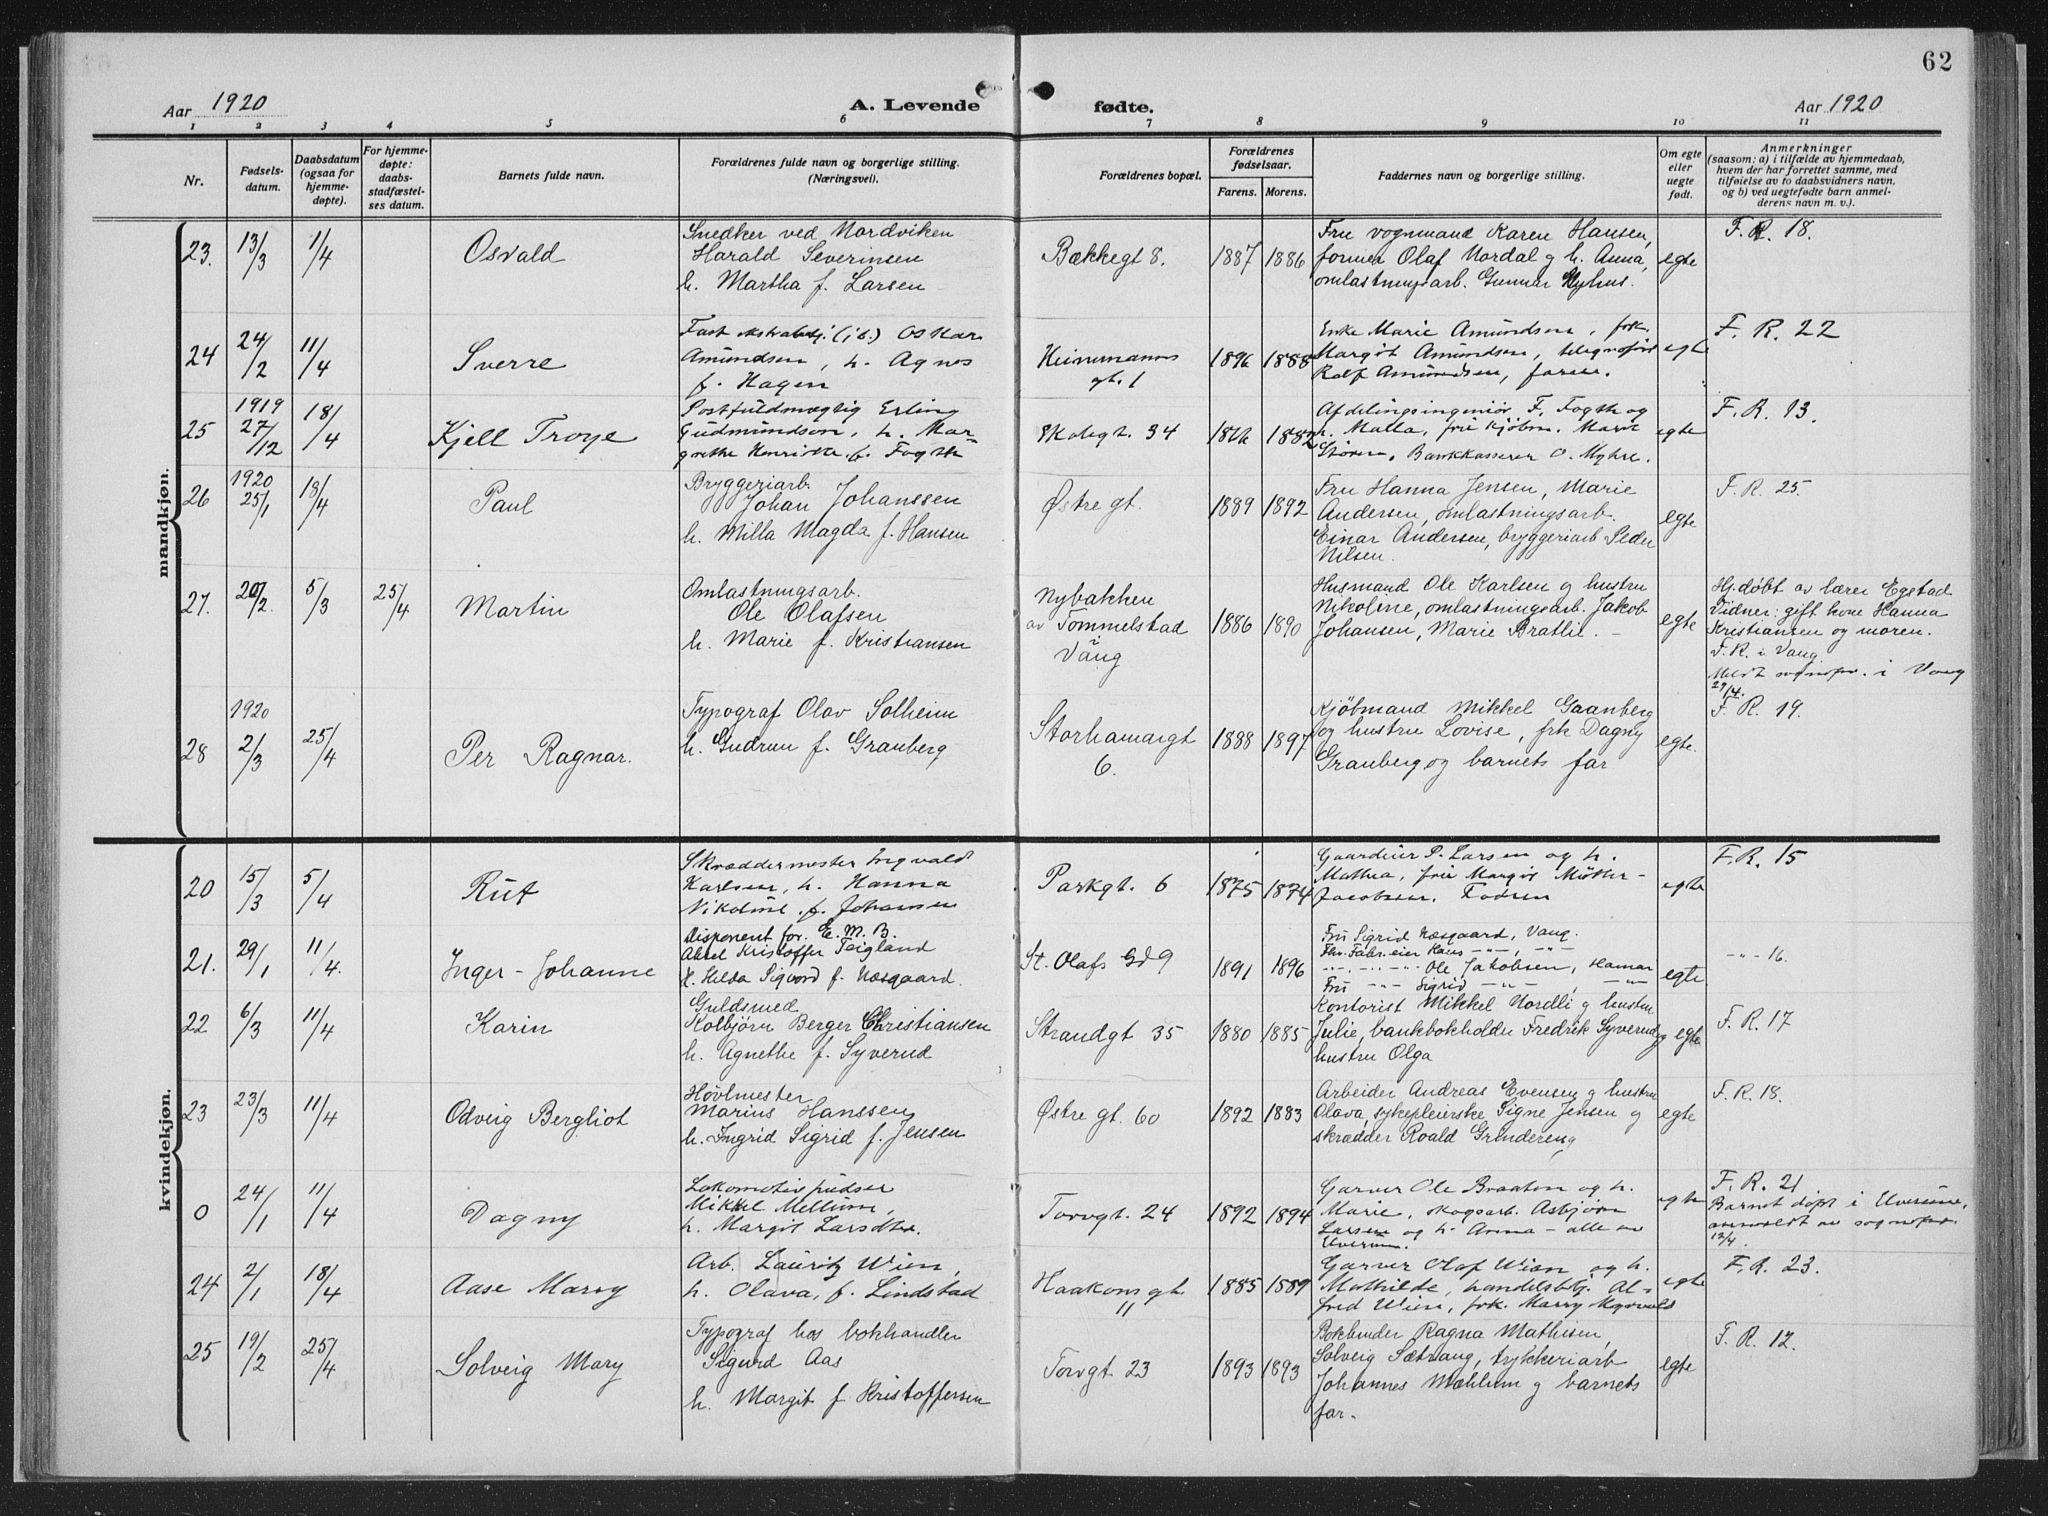 62
Aar 1920
A. Levende
fødte.
Aar 1920
1 2 3 4 5 6 7 8 9 10 11
Nr.
Fødsels-
datum.
Daabsdatum
(ogsaa for
hjemme-
døpte).
For hjemme-
døpte:
daabs-
stadfæstel-
ses datum.
Barnets fulde navn.
Forældrenes fulde navn og borgerlige stilling.
(Næringsvei).
Forældrenes bopæl.
Forældrenes
fødselsaar.
Farens. Morens.
Faddernes navn og borgerlige stilling.
Om egte
eller
uegte
født.
Anmerkninger
(saasom: a) i tilfælde av hjemmedaab,
hvem der har forrettet samme, med
tilføielse av to daabsvidners navn,
og b) ved uegtefødte barn anmel-
derens navn m. v.).
mandkjøn.
23. 13/3 1/4
Osvald
Snedker ved Nordviken
Harald Severinsen
h. Martha f. Larsen
Bækkegt 8.
1887 1886
Fru vognmand Karen Hansen,
former Olaf Nordal g h. Anna,
omlastningsarb. Gunnar Myhus.
egte
F. R. 18.
24 24/2 11/4
Sverre
Oskar
Amundsen, h. Agnes
f. Hagen
Heinemanns
gt. 1
1896 1888
Enke Marie Amundsen, frk.
Margot Amundsen,
Rolf Amundsen, faren.
egte
F. R. 22
25 1919 27/12 18/4
Kjell Troye
Postfuldmægtig Erling
Gudmundson, h. Mar-
grethe Henriette f. Fogth
Skolegt. 34
1882
Afdelingsingeniør F. Fogth og
h. Malla,
Støren, Bankkasserer O. Myhre.
egte
F. R. 13.
26 1920 25/1 18/4
Paul
Bryggeriarb.
Johan Johanssen
h. Milla Magda f. Hansen
Østre gt.
1889 1892
Fru Hanna Jensen, Marie
Andersen, omlastningsarb.
Einar Andersen, bryggeriarb Peder
Nilsen.
egte
F. R. 25.
27. 20/2. 5/3 25/4
Martin
Omlastningsarb.
Ole Olafsen
h. Marie f. Kristiansen
Nybakken
av Tommelstad
i
Vang
1886 1890
Husmand Ole Karlsen g hustru
Nikoline, omlastningsarb. Jakob
Johansen, Marie Bratlie. –
egte
Hj.døbt av lærer Egstad
Vidner: gift kone Hanna
Kristiansen og moren.
F. R. i Vang
Meldt sognepr. i Vang
29/4.
28 1920 2/3 25/4
Per Ragnar.
Typograf Olav Solheim
h. Gudrun f. Granberg
Storhamargt
6.
1888 1897
Kjøbmand Mikkel Gaanberg
og hustru Lovise, frk Dagny
Granberg og barnets far
egte.
F. R. 19.
kvindekjøn.
20 15/3 5/4
Rut
Skræddermester Ingvald
Karlsen, h. Hanna
Nikoline f. Johansen
Parkgt. 6
1875 1874
Gaardeier P. Larsen og h.
Mathea,
Jacobsen.
egte
F. R. 15
21. 29/1 11/4.
Inger-Johanne
Disponent for. E. M. B.
Aksel Kristoffer Teigland
H. Hilda Sigvord f. Næsgaard.
St. Olafs Gd 9
1891 1896
Fru Sigrid Næsgaard, Vang.
Hr. Fabr.eier Hans –"–, –"–
–"– –"– Ole Jakobsen, Hamar
Fru –"– Sigrid –"–, –"–
egte
–"– 16.
22 6/3 11/4
Karin
Guldsmed
Kolbjørn Berger Christiansen
h. Agnethe f. Syverud
Strandgt 35
1880 1885
Kontorist Mikkel Nordli g hustru
Julie, bankbokholder Fredrik Syverud g
hustru Olga
egte
F. R. 17
23 23/3 11/4
Odveig Bergliot
Høvlmester
Marius Hanssen
h. Ingrid Sigrid f. Jensen
Østre gt. 60
1892 1883
Arbeider Andreas Evensen g hustru
Olava, sykepleierske Signe Jensen g
skrædder Roald Grindereng
egte
F. R. 18.
0 24/1 11/4
Dagny
Lokomotivpudser
Mikkel Mellum,
h. Margit Larsdtr.
Torvgt. 24
1892 1894
Garver Ole Braaten og h.
Marie, skogsarb. Asbjørn
Larsen og h. Anna – alle av
Elverum.
egte
F. R. 21
Barnet døpt i Elverum,
anmeldt av sognepr.
12/4.
24 2/1 18/4
Aase Marry
Arb. Lauritz Wien,
h. Olava, f. Lindstad
Haakons gt.
11
1885 1889
Garver Olaf Wien og h.
Mathilde, handelsbtj. Al-
fred Wien, frk. Marry Myrvold
egte
F. R. 23.
25 19/2 25/4
Solveig Mary
Typograf hos bokhandler
Sigurd Aas
h. Margit f Kristoffersen
Torvgt 23
1893 1893
Bokbinder Ragna Mathisen,
Solveig Sætrang, trykkeriarb
Johannes Mæhlum g barnets
far.
egte
F. R. 12.